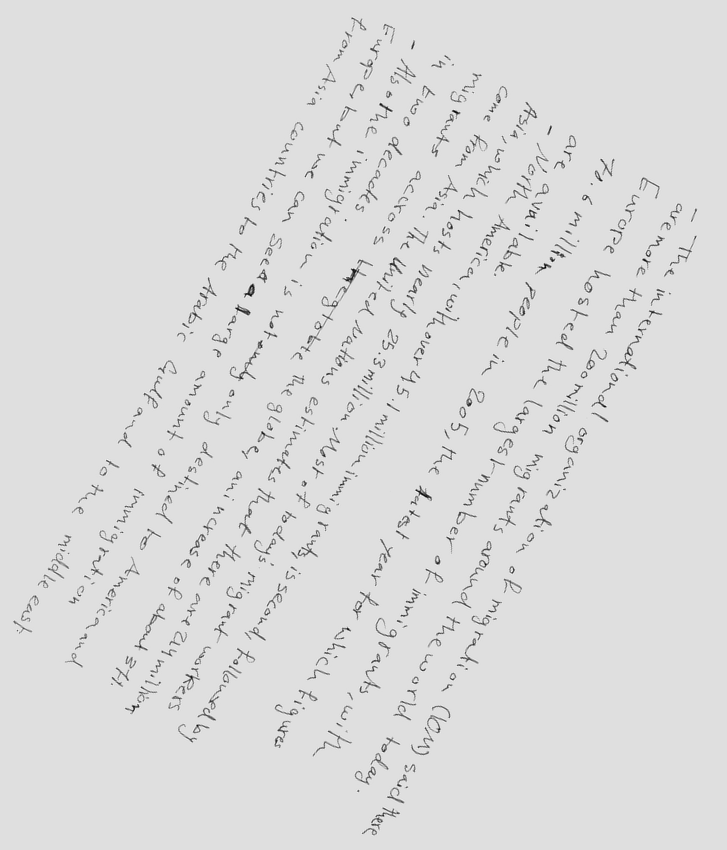 - The international organization of migration (IOM) said there
are more than 200 million migrants around the world today.
Europe hosted the largest number of immigrants, with
70.6 million people in 2005, the latest year for which figures
are available.
- North America, with over 45.1 million immigrants, is second, followed by
Asia, which hosts nearly 25.3 million. Most of today's migrant workers
come from Asia. The United Nations estimates that there are 214 million
migrants across the globe the globe, an increase of about 37%
in two decades.
- Also the immigration is not only only destined to America and
Europe but we can see a large amount of immigration
from Asia countries to the Arabic Gulf and to the middle east.